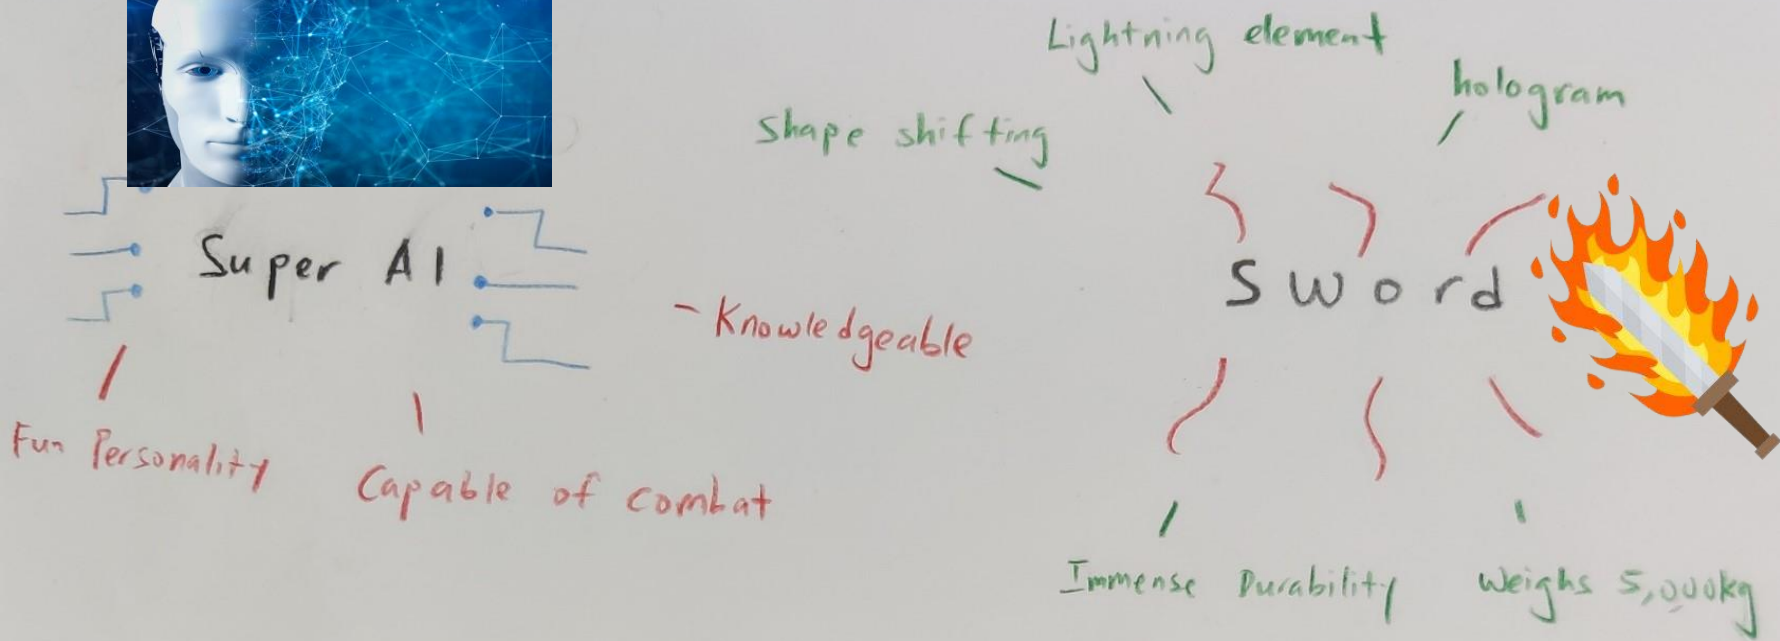 Lightning element
hologram
Shape shifting
Super AI
Sword
- Knowledgeable
Fun Personality
Capable of combat
Immense Durability
Weighs 5,000kg